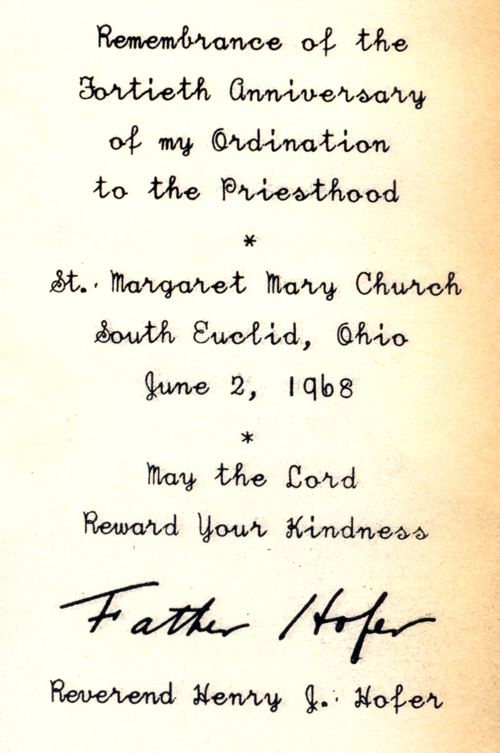 Remembrance of the
Fortieth Anniversary
of my Ordination
to the Priesthood
*
St. Margaret Mary Church
South Euclid, Ohio
June 2, 1968
*
May the Lord
Reward Your Kindness
Father Hofer
Reverend Henry J. Hofer